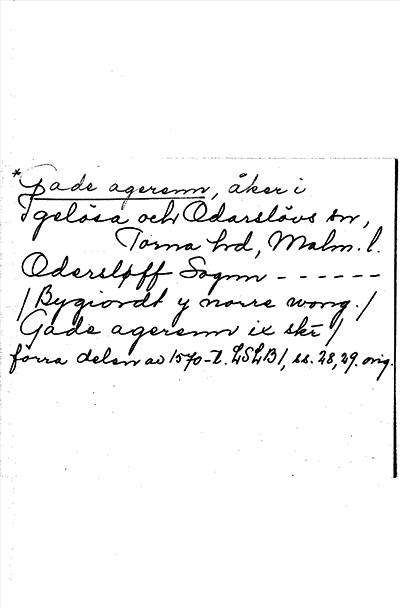 *Gade agerenn, åker i
Igelösa och Odarslövs sn,
Torna hd, Malm. l.
Odersløff Sognn - - - - - -
/ Bygiordt y norre wong. /
Gade agerenn ix skr /
förra delen av 1570-t. LSLB/, ss. 28, 29. orig.